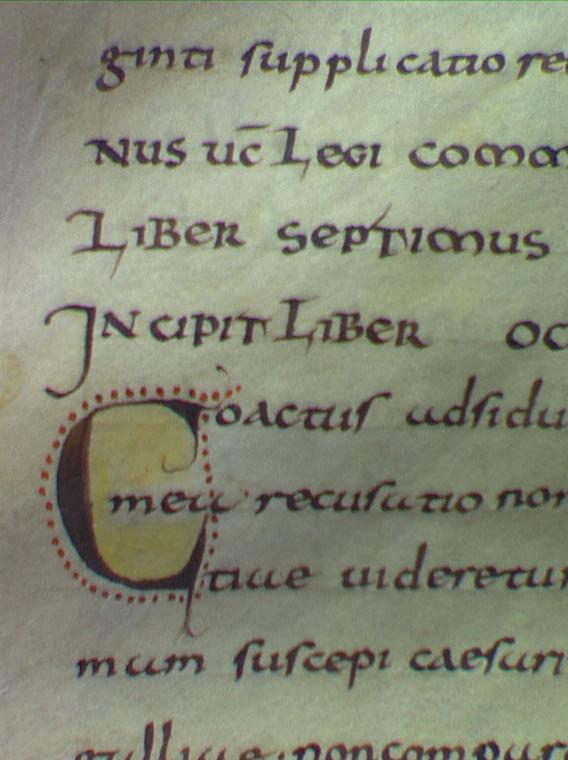 ginti supplicatio re
NUS uc̄ Legi comm
LIBER SEPTIMUS
INCIPIT LIBER OC
Coactus adsidu
mea recusatio non
tiae uideretur
mum suscepi caesari
galliae. noncompar